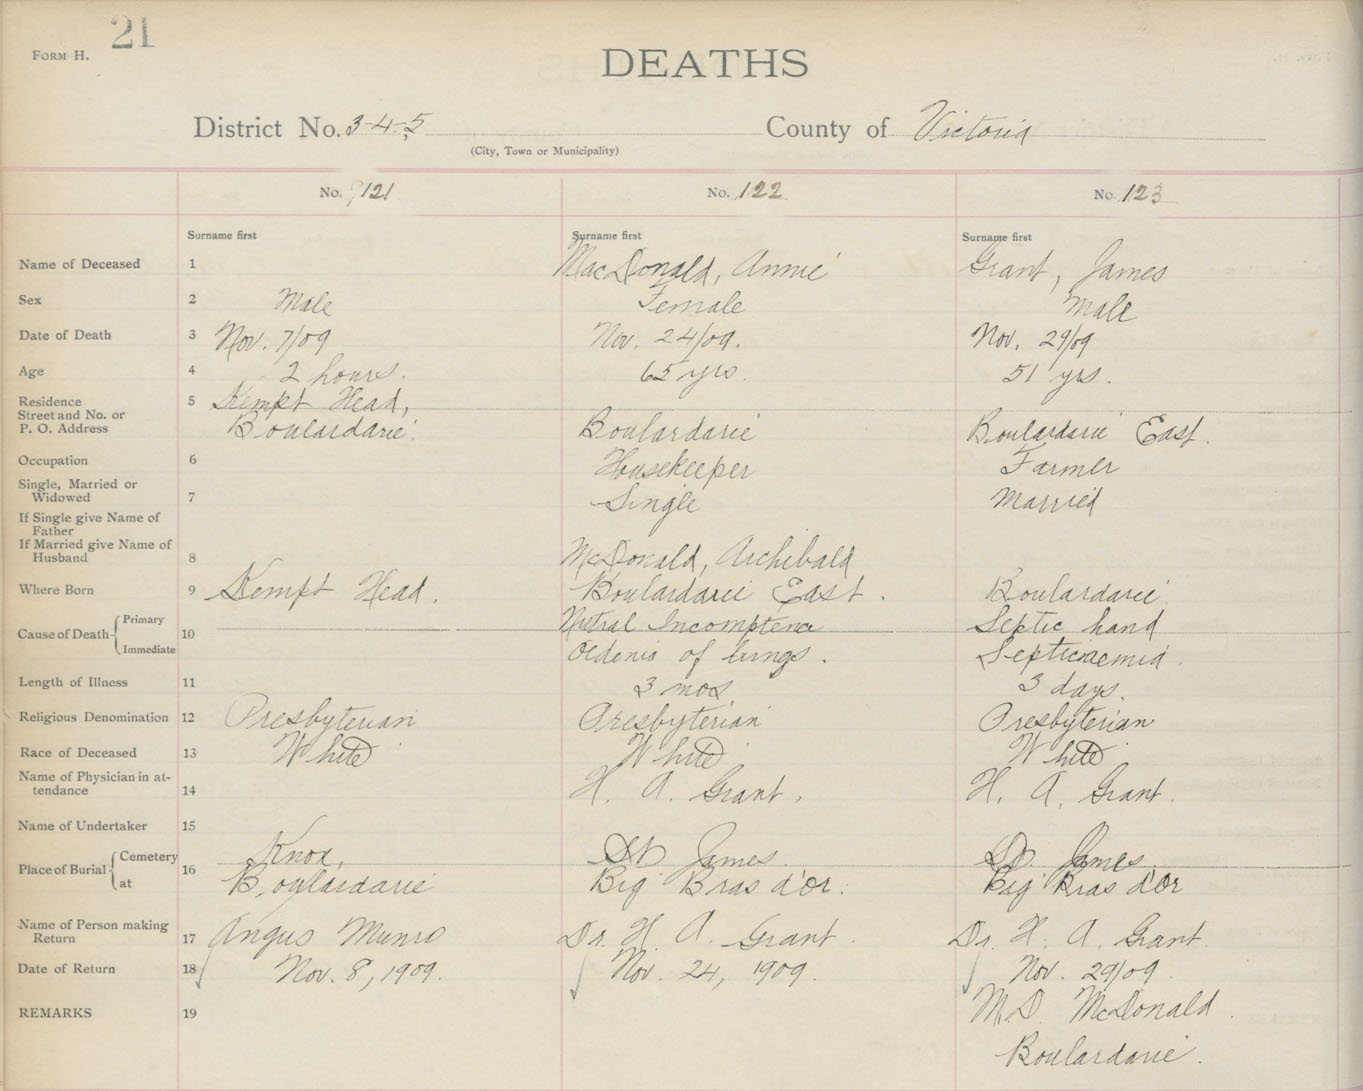 21
FORM H.
DEATHS
District No. 3-4-5 County of Victoria
(City, Town or Municipality)
No. 121 No. 122 No. 123
Surname first Surname first Surname first
Name of Deceased 1 MacDonald, Annie Grant, James
Sex 2 Male Female Male
Date of Death 3 Nov. 7/09 Nov. 24/09. Nov. 29/09
Age 4 2 hours. 65 yrs. 51 yrs.
Residence 5 Kempt Head,
Street and No. or
P. O. Address Boulardarie. Boulardarie Boulardarie East.
Occupation 6 Housekeeper Farmer
Single, Married or
Widowed 7 Single Married
If Single give Name of
Father
If Married give Name of
Husband 8 McDonald, Archibald
Where Born 9 Kempt Head. Boulardarie East. Boulardarie
Cause of Death Primary 10 Mitral Incomptence Septic hand
Immediate Oedema of lungs. Septicaemia.
Length of Illness 11 3 mos 3 days.
Religious Denomination 12 Presbyterian Presbyterian Presbyterian
Race of Deceased 13 White White White
Name of Physician in at-
tendance 14 H. A. Grant. H. A. Grant.
Name of Undertaker 15
Place of Burial Cemetery 16 Knox, St James. St. James.
at Boulardarie Big Bras d'Or. Big Bras d'Or
Name of Person making
Return 17 Angus Munro Dr. H. A. Grant. Dr. H. A. Grant.
Date of Return 18 Nov. 8, 1909. Nov. 24, 1909. Nov. 29/09.
REMARKS 19 M.D. McDonald.
Boulardarie.